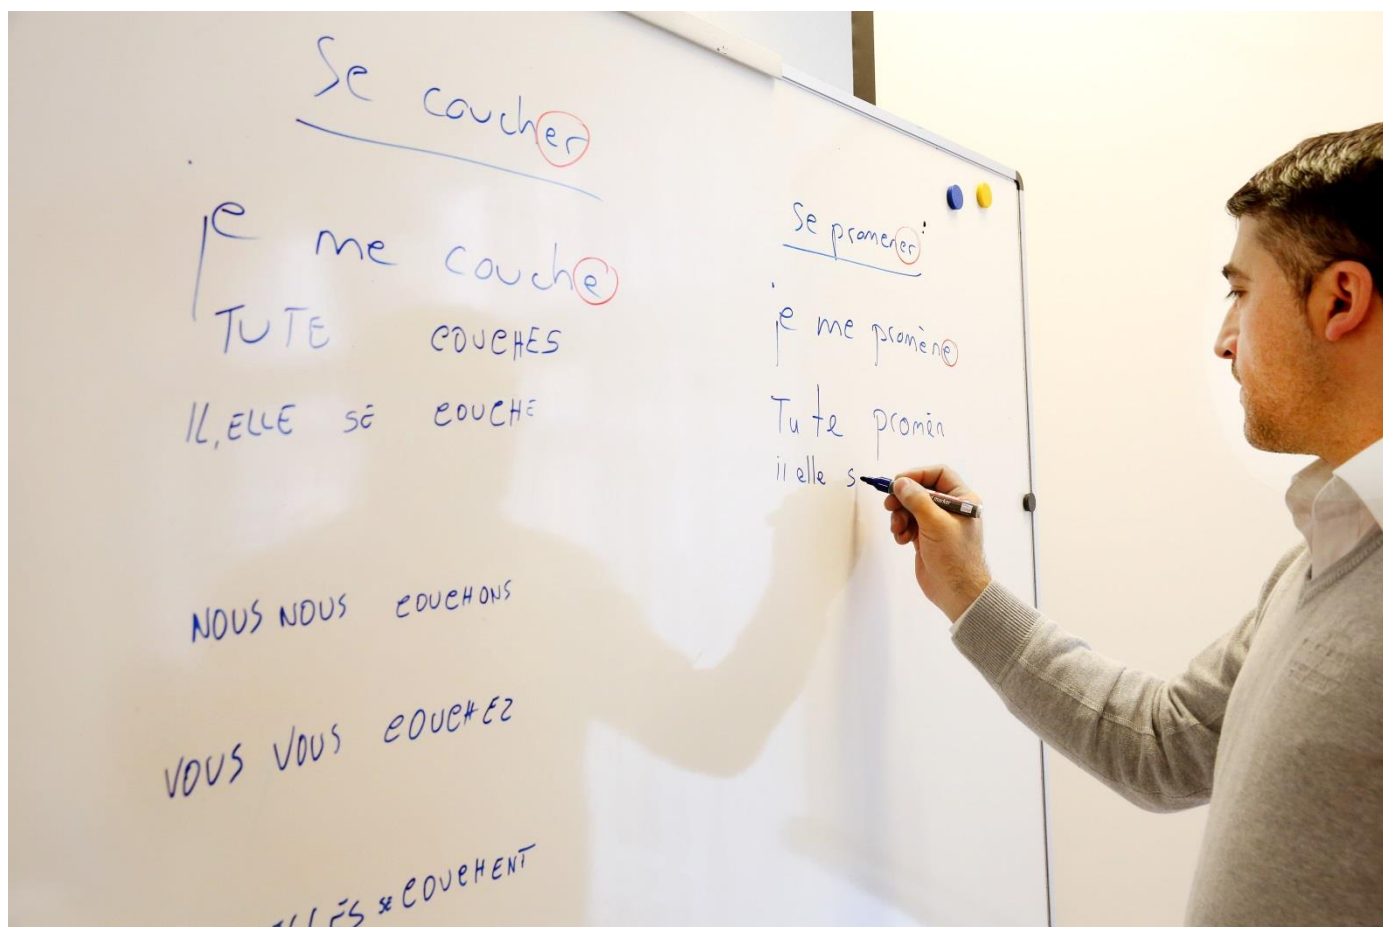 Se coucher
je me couche
TU TE COUCHES
IL, ELLE SE COUCHE
NOUS NOUS COUCHONS
VOUS VOUS COUCHEZ
ELLES se COUCHENT
Se promener :
je me promène
Tu te promèn
il elle s
marker